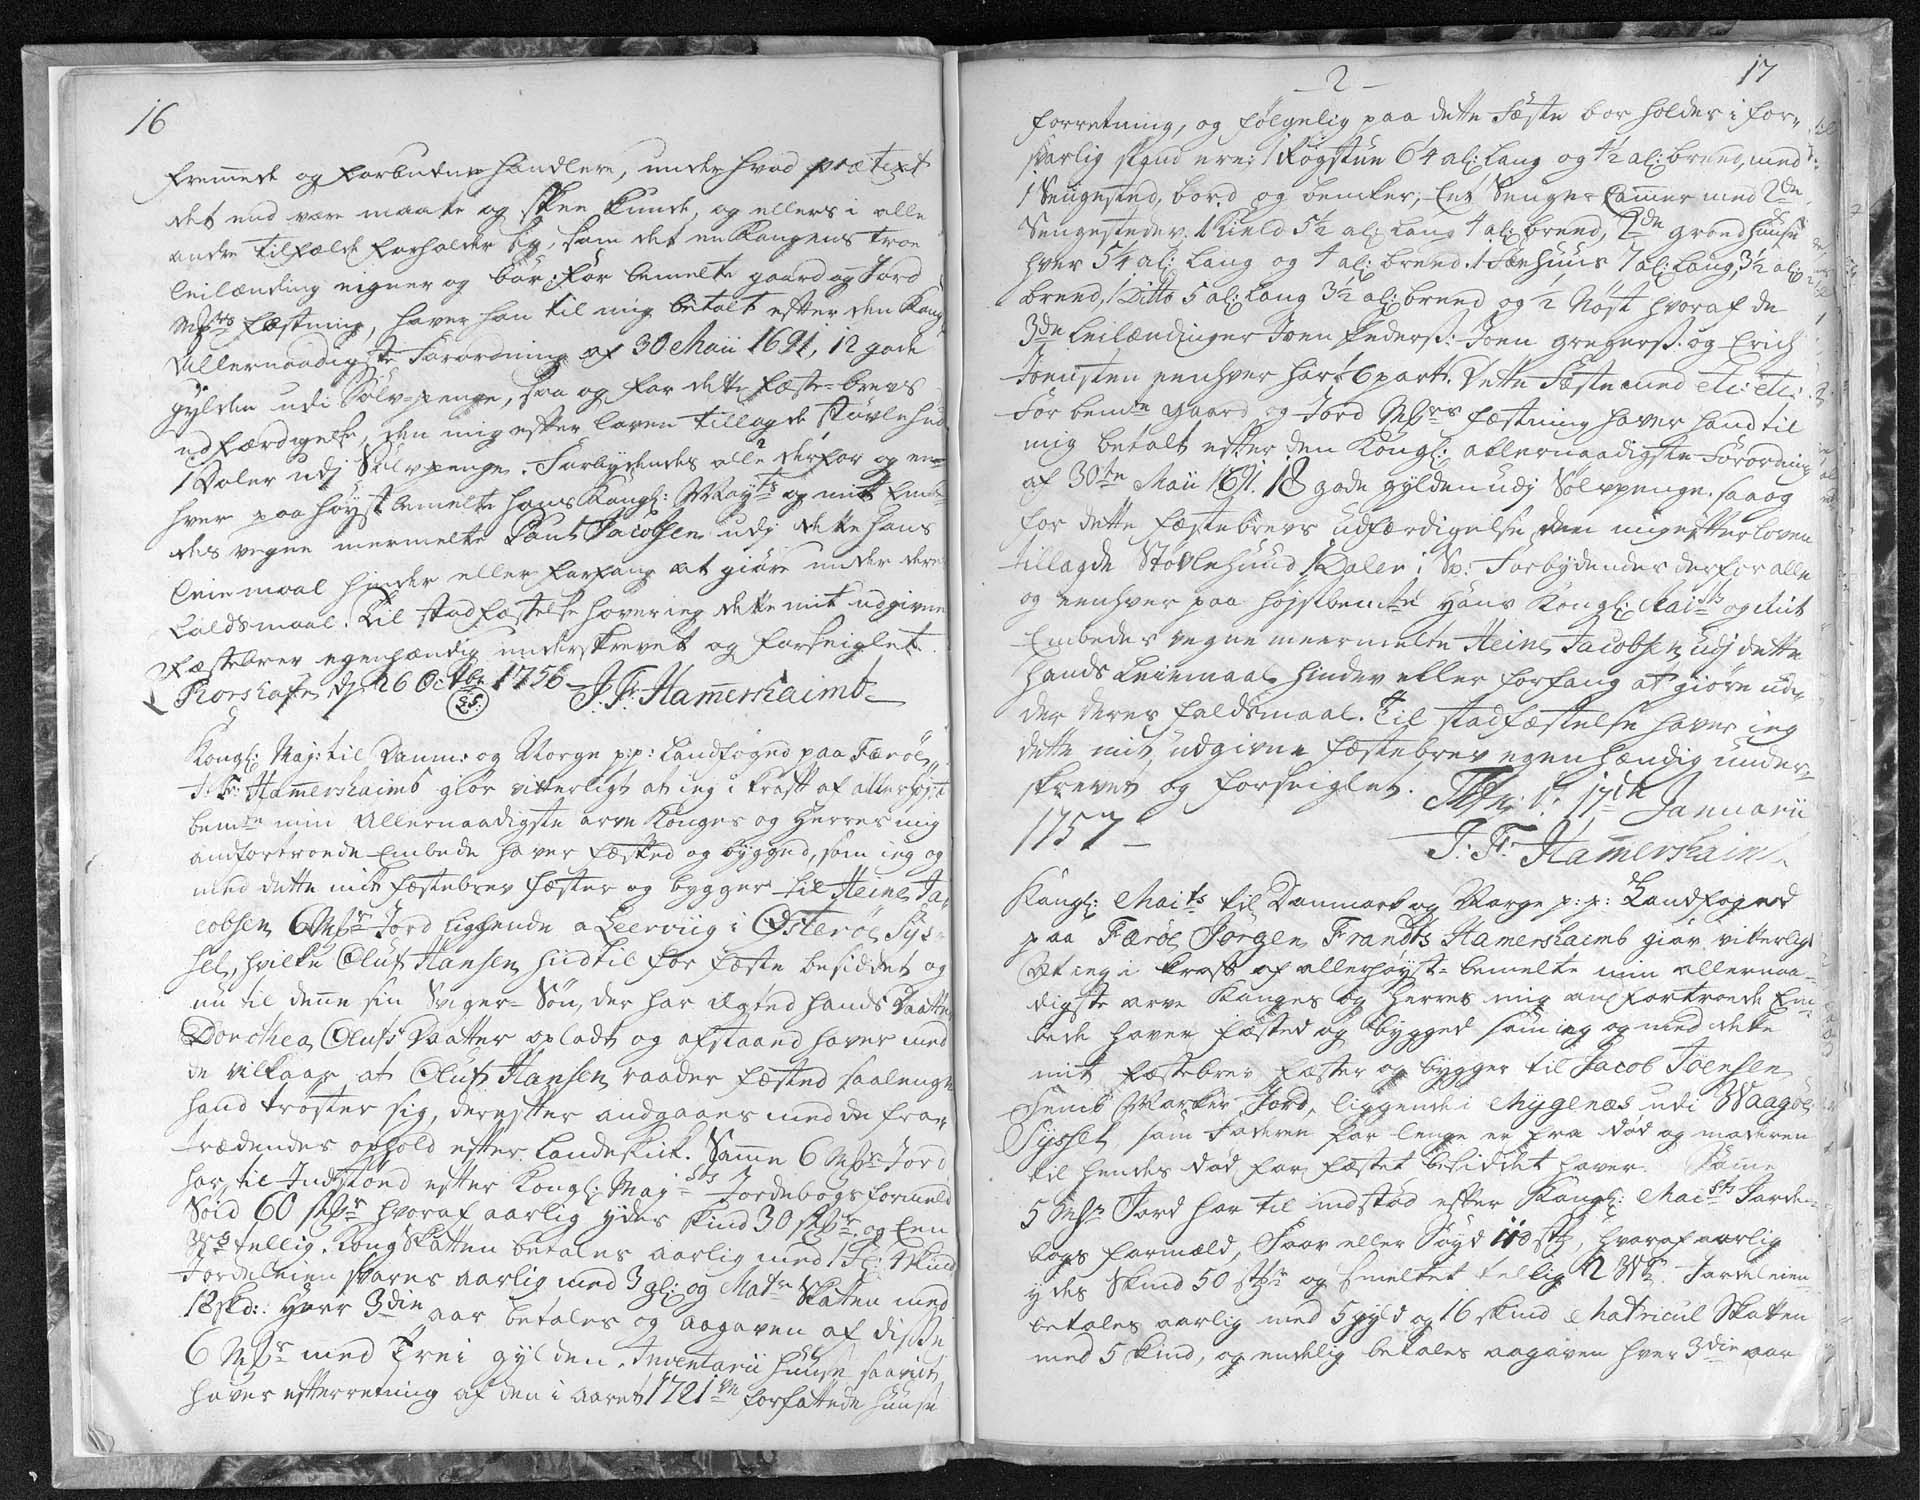 16
fremede og forbudne handlere, under hvad prætext
det end være maatte og skee kunde, og ellers i alle
andre tilfælde forholder sig, som det en Kongens troe
leilænding eigner og bør, for bemelte gaard og Jord
Mrks fæstning, haver han til mig betalt efter den Kongl:
Allernaadigste Forordning af 30 Maii 1691, 12 gode
gylden udi Sølv-penge, saa og for dette fæste-brevs
udfærdigelse, den mig efter loven tillagde støvlehud
1 Daler udj Sølvpenge. Forbydendes alle derfor og en-
hver paa høyst bemelte hans Kongl: Mayts og mit Embe-
des vegne mermelte Paul Jacobsen udj dette hans
leiemaal hinder eller forfang at giøre under deres
faldsmaal. Til stadfæstelse haver ieg dette mit udgivne
fæstebrev egenhændig underskrevet og forseiglet.
Thorshafn dj 26 Octbr 1756 J. Fr: Hamershaimb
Kongl: Maj: til Danm: og Norge p:p: Landfoged paa Færöe,
J: Fr: Hamershaimb giør vitterligt at ieg i kraft af allerhøjst
bemte min Allernaadigste arve Konges og Herres mig
anfortroede Embede haver fæsted og bygged, som ieg og
med dette mit fæstebrev fæster og bygger til Heine Ja-
cobsen 6 Mrk Jord liggende a Leervig i Österöe Sys-
sel, hvilke Oluf Hansen hidtil for fæste besiddet og
nu til denne sin Sviger-Søn, der har ægted hands Daatter
Dorothea Olufs Daatter opladt og afstaaed haver med
de vilkaar at Oluf Hansen raader fæsted saalenge
hand trøster sig, derefter andgaaes med de fra-
trædendes ophold efter Landskik. Samme 6 Mrk Jord
har til Indstøed efter Kongl: Maj:sts Jordebogs formeld
Söid 60 stkr hvoraf aarlig ydes skind 30 stkr og Een
Wog tellig. Kong Skatten betales aarlig med 1 gl: 4 skind
Jordeleien svares aarlig med 3 gl: og Matr. Skatten med
18 skd: Hver 3die aar betales og aagaven af disse
6 Mrk med Trei gylden. Inventarii huuse saavit
haves efterretning af den i aaret 1721 forfattede huuse
- 2 -
17
forretning, og følgelig paa dette Fæste bør holdes i for-
svarlig stand ere: 1 Røgstue 6¼ al: lang og 4½ al: breed, med
1 Sengested, bord og bencker, Eet Senge-Camer med 2de
Sengesteder. 1 Kield 5½ al: lang 4 al: breed, 2de groedhuuse
hver 5¼ al: lang og 4 al: breed. 1 Fæehuus 7 al: lang, 3½ al:
breed, 1 Ditto 5 al: lang 3½ al: breed og ½ Nöst hvoraf de
3de Leilændinger Joen Pederss: Joen Gregerss. og Erich
Joensen eenhver har 6 part. Dette Fæste med etc: etc:
For bemte gaard og Jord Mrks fæstning haver hand til
mig betalt efter den Kongl: allernaadigste Forordning
af 30te Maii 1691. 18 gode gylden udj Sølvpenge saa og
for dette fæstebrevs udfærdigelse den mig efter loven
tillagde Støvlehuud 1 Daler i Sp: Forbydendes derfor alle
og eenhver paa højstbemte Hans Kongl: Maists og Mit
Embedes vegne meermelte Heine Jacobsen udj dette
hands Leiemaal hinder eller forfang at giøre un-
der deres faldsmaal. Til stadfæstelse haver ieg
dette mit udgivne fæstebrev egenhændig under-
skrevet og forseiglet. Thhn: d: 17de Januarii
1757 -
J: Fr: Hamershaimb
Kongl: Maits til Danmark og Norge p: p: Landfoged
paa Færöe Jörgen Frandts Hamershaimb giør vitterligt
At ieg i kraft af allerhøyst-bemelte min allernaa-
digste arve Konges og Herres mig anfortroede Em-
bede haver fæsted og bygged som ieg og med dette
mit fæstebrev fæster og bygger til Jacob Joensen
Femb Marker Jord, liggende i Mygenæs udi Waagöe
Syssel som Faderen for lenge er fra död og moderen
til hendes död for fæstet besiddet haver. Samme
5 Mrk Jord har til indstød efter Kongl: Maists Jorde-
bogs formæld, Faar eller Søyd 110 stk, hvoraf aarlig
ydes Skind 50 stkr og Smeltet tellig 2 Wr. Jordeleien
betales aarlig med 5 gyld og 16 skind Matricul Skatten
med 5 skind, og endelig betales aagaven hver 3die aar